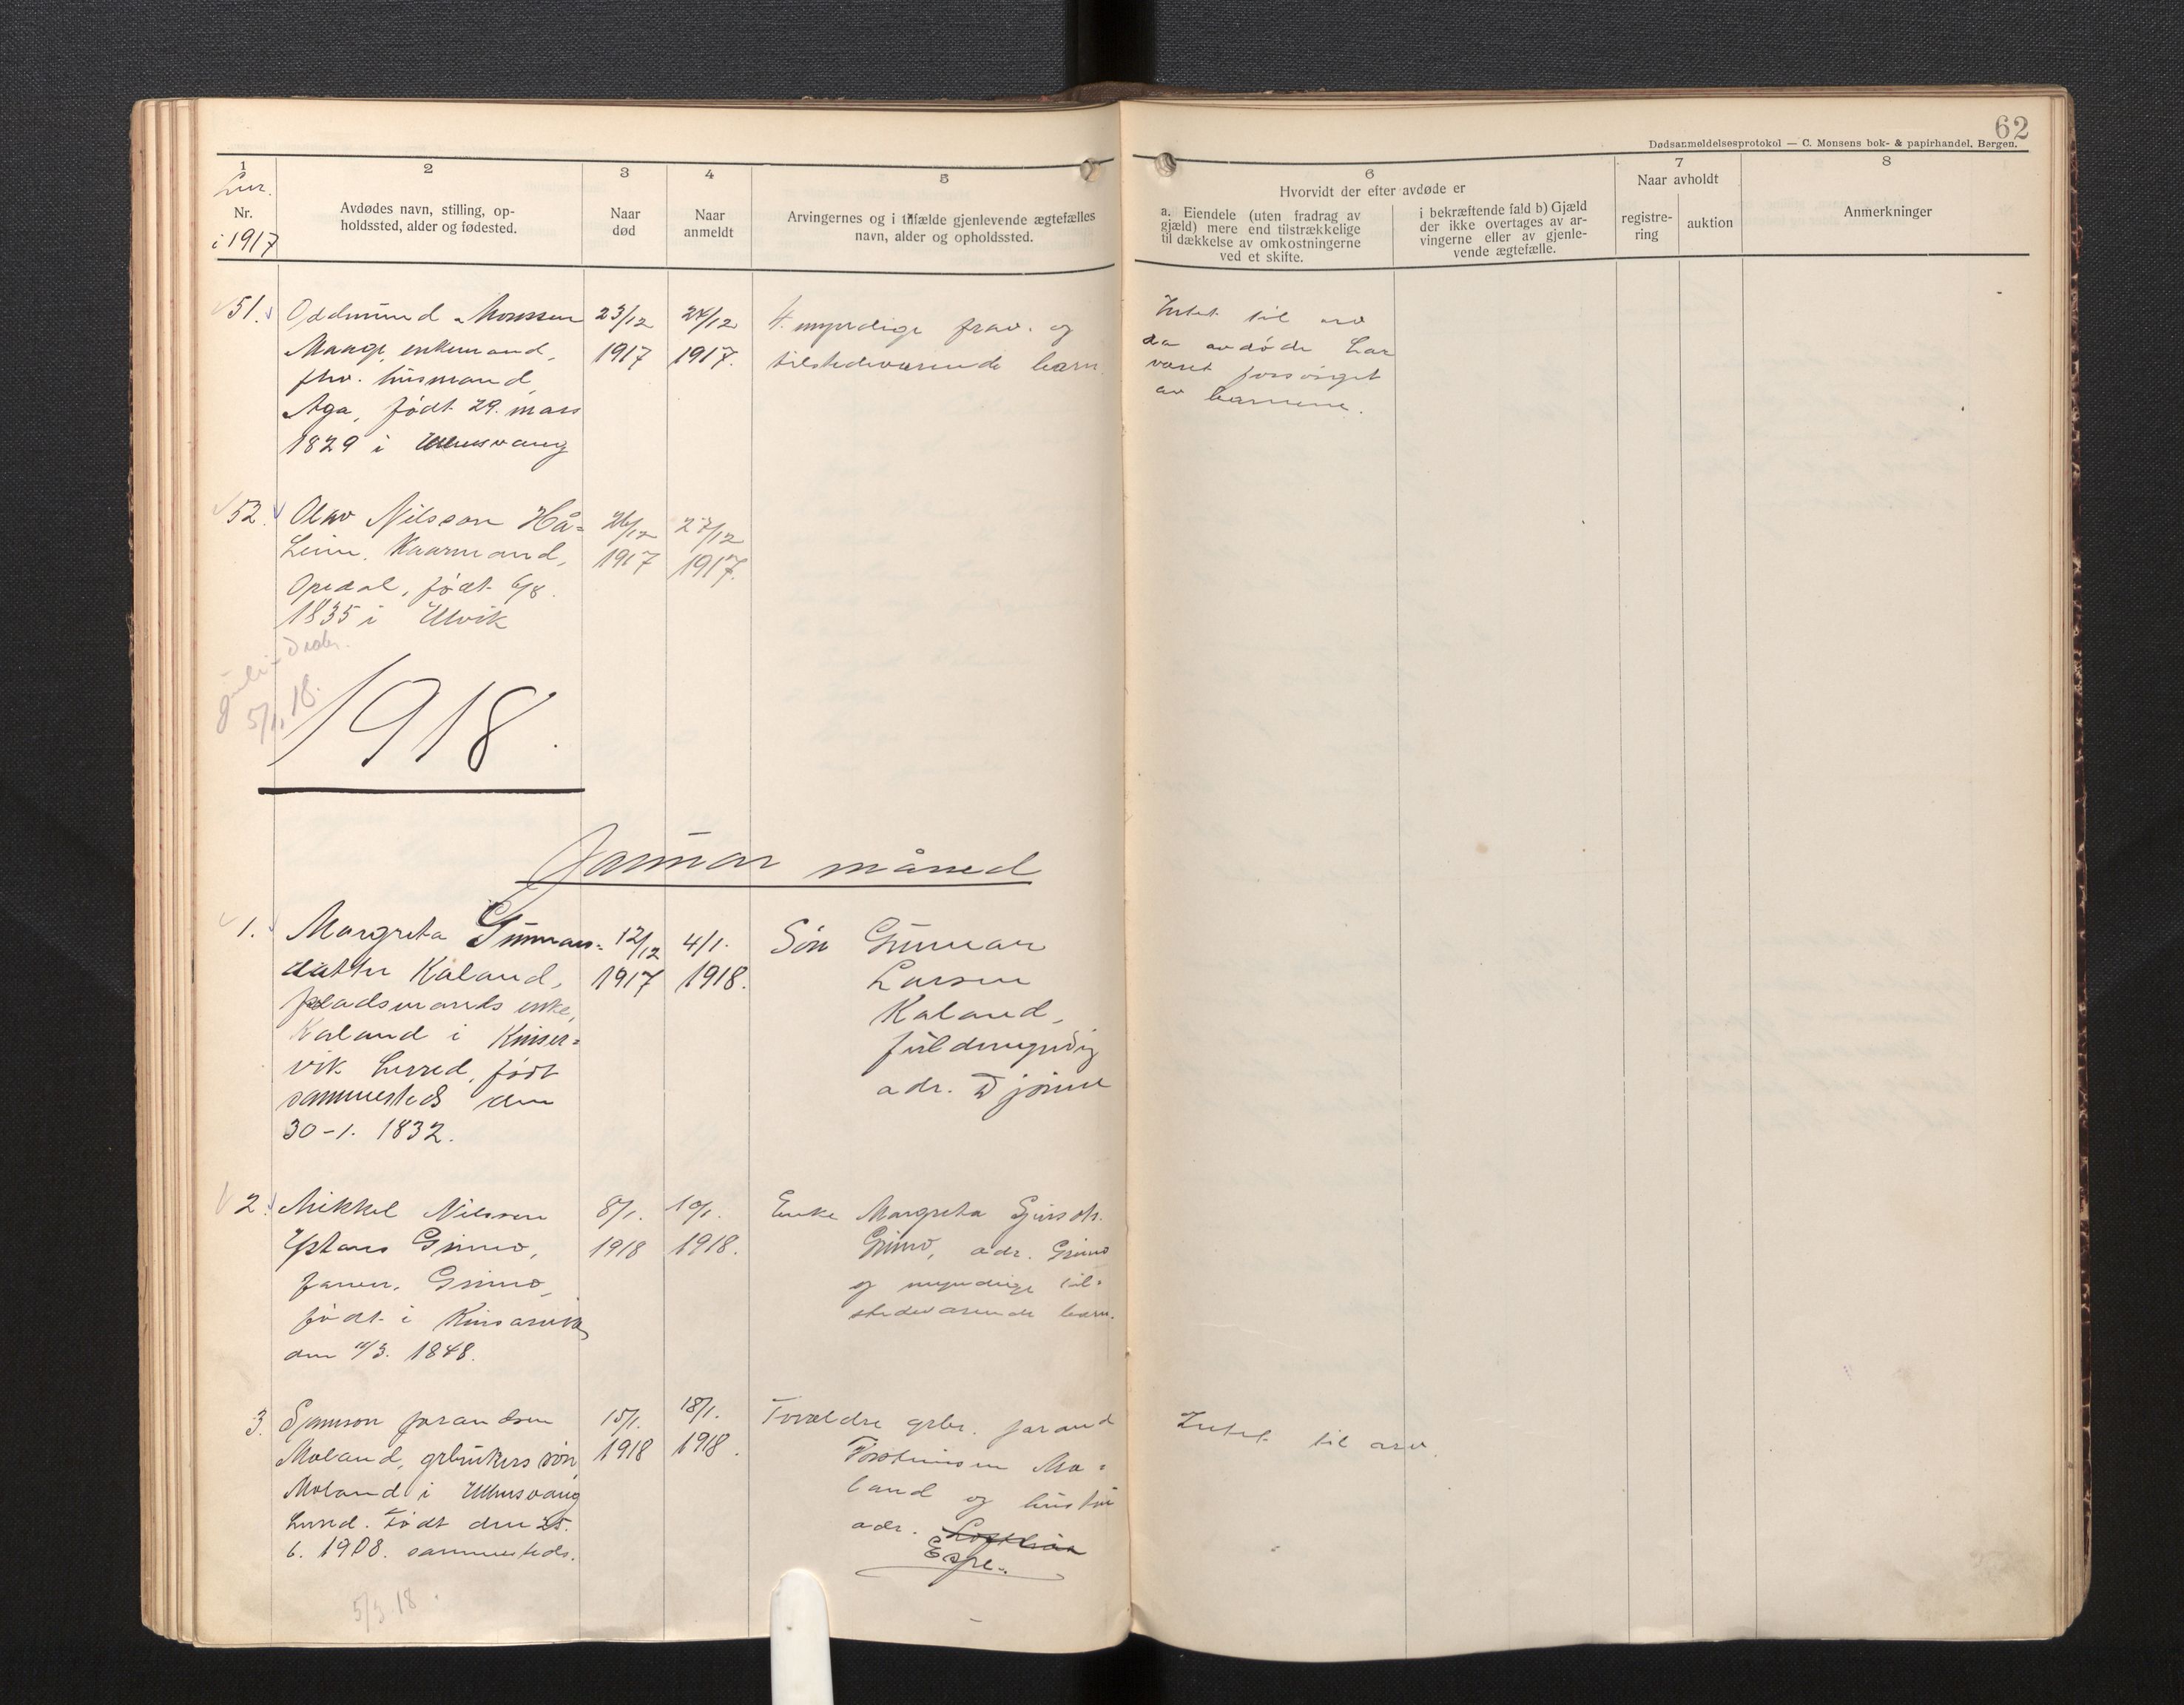 62
Dødsanmeldelsesprotokol — C. Monsens bok- & papirhandel, Bergen.
1
Nr.
i 1917
2
Avdødes navn, stilling, op-
holdssted, alder og fødested.
3
Naar
død
4
Naar
anmeldt
5
Arvingernes og i tilfælde gjenlevende ægtefælles
navn, alder og opholdssted.
6
Hvorvidt der efter avdøde er
a. Eiendele (uten fradrag av
gjæld) mere end tilstrækkelige
til dækkelse av omkostningerne
ved et skifte.
i bekræftende fald b) Gjæld
der ikke overtages av ar-
vingerne eller av gjenle-
vende ægtefælle.
7
Naar avholdt
registre-
ring
auktion
8
Anmerkninger
51.
Oddmund Monssen
Maage, enkemand,
fhv. husmand,
Aga, født 29. mars
1829 i Ullensvang
23/12
1917
24/12
1917.
4 myndige frav. og
tilstedeværende barn
Intet til arv
da avdøde har
været forsørget
av barnene.
52.
Olav Nilsson Hå=
heim, Kaarmand,
Opedal, født 6/8.
1835 i Ulvik
26/12
1917
27/12
1917.
5/1. 18.
1918.
Januar måned
1.
Margreta Gunnars=
datter Kaland,
pladsmands enke,
Kaland i Kinser=
vik herred, født
sammesteds den
30-1. 1832.
12/12
1917
4/1.
1918.
Søn Gunnar
Larsen
Kaland,
fuldmyndig
adr. Djønne
2.
Mikkel Nilssen
Ystanes Grimo,
farer, Grimo,
født i Kinsarvik
den 11/3. 1848.
8/1.
1918
10/1.
1918.
Enke Margreta Sjursdtr.
Grimo, adr. Grimo
og myndige til=
stedeværende barn.
3.
Sjamson Jorandsen
Moland, grbrukers søn,
Moland i Ullensvang
herred. Født den 25.
6. 1908. sammesteds.
15/1.
1918
18/1.
1918.
Forældre grbr. Jorand
Torsteinsen Mo=
land og hustru
adr. Lofthus
Espe.
Intet til arv.
5/3 18.